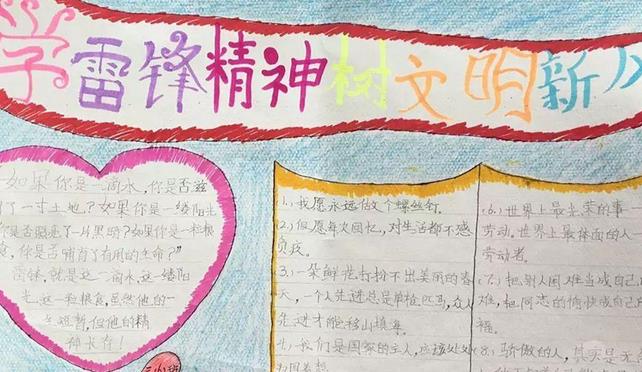 学雷锋精神树文明新
如果你是一滴水,你是否滋
了一寸土地?如果你是一缕阳光
你是否照亮了一片黑暗?如果你是一粒粮
食,你是否哺育了有用的生命?"
雷锋,就是这一滴水,这一缕阳
光,这一粒粮食,虽然他的一
生短暂,但他的精
神长存!
(1)我愿永远做个螺丝钉.
(2)但愿每次回忆,对生活都不感
负疚。
(3)一朵鲜花打扮不出美丽的春
天,一个人先进总是单枪匹马,众人
先进才能移山填海。
我们是国家的主人,应该处处
为国着想
(6)世界上最光荣的事—
劳动.世界上最体面的人—
劳动者。
(7)把别人困难当成自己
难,把同志的愉快成自己
福。
(8)骄傲的人,其实是无